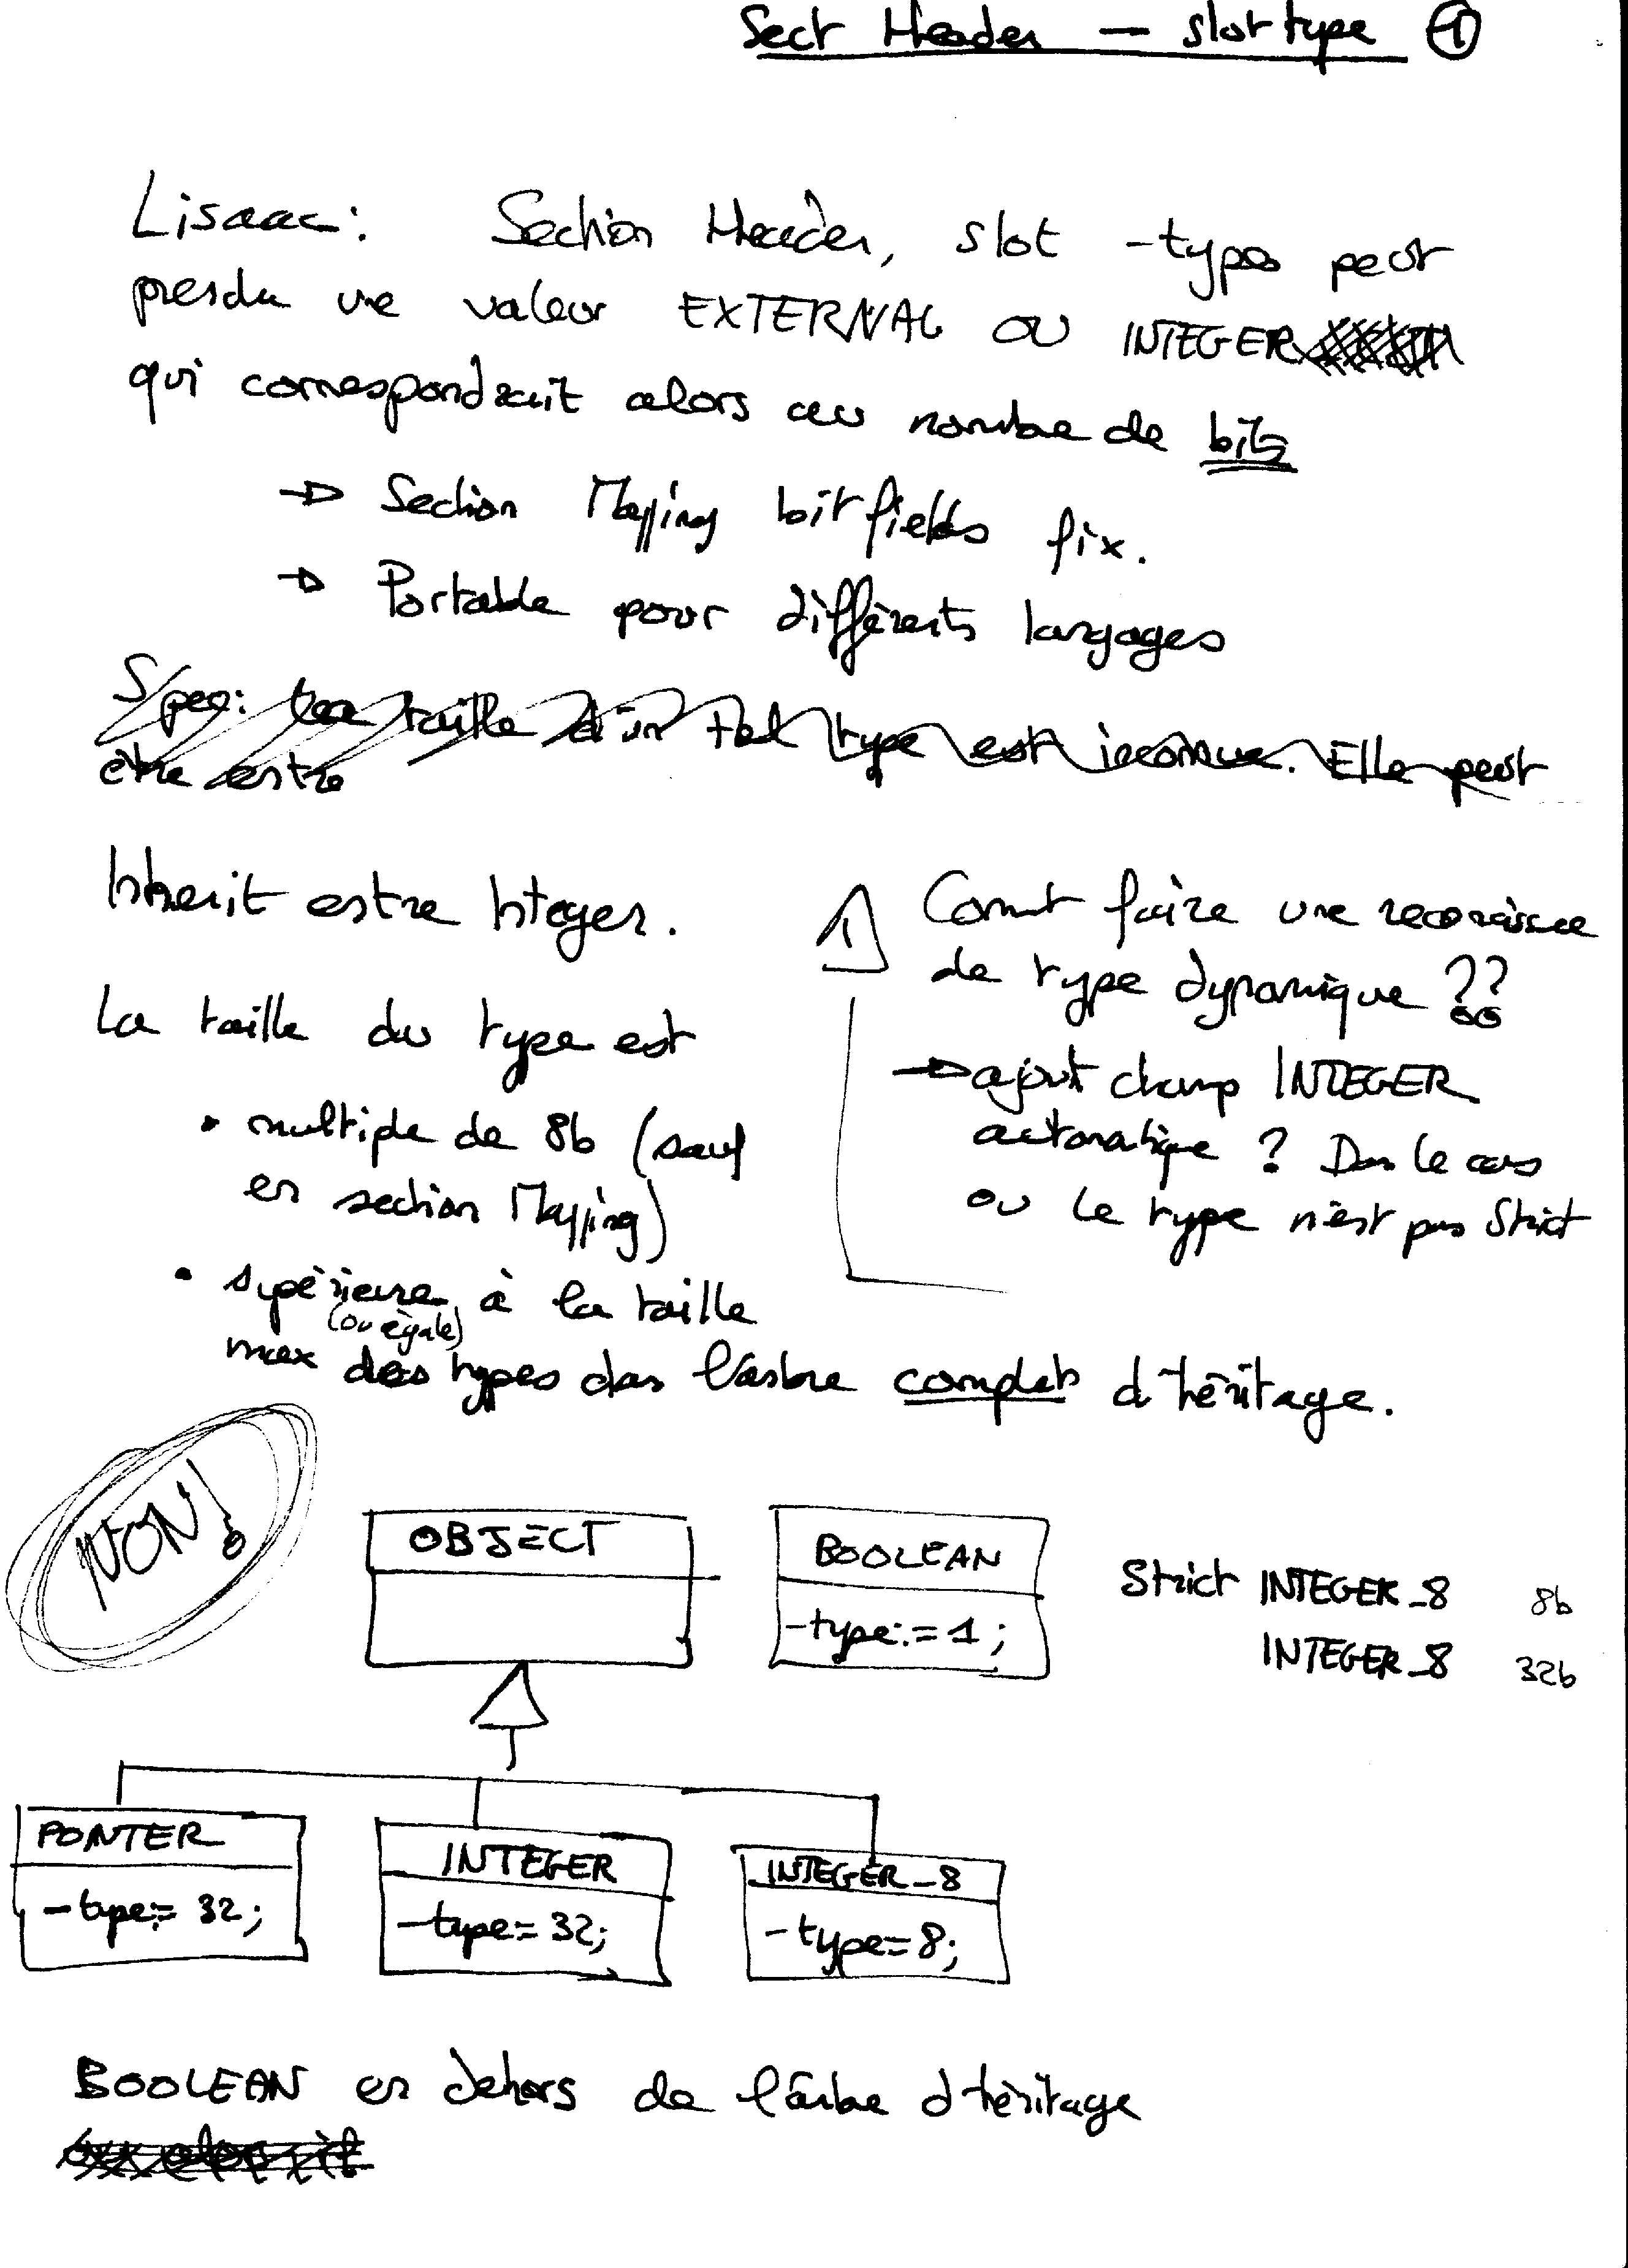 Sect Header — slot type ①
Lisaac: Section Header, slot -type peut
prendre une valeur EXTERNAL OU INTEGER
qui correspondrait alors au nombre de bits
→ Section Mapping bitfields fix.
→ Portable pour différents langages
Spec: La taille d'un tel type est inconnue. Elle peut
être entre
Inherit entre Integer.
La taille du type est
• multiple de 8b (sauf
en section Mapping)
• supérieure à la taille
(ou égale)
max des types dans l'arbre complet d'héritage.
⚠ Commt faire une reconnaissance
de type dynamique ??
→ ajout champ INTEGER
automatique ? Dans le cas
ou le type n'est pas Strict
NON!
OBJECT
BOOLEAN
-type := 1 ;
Strict INTEGER_8 8b
INTEGER_8 32b
POINTER
- type := 32;
INTEGER
- type := 32;
INTEGER_8
- type := 8;
BOOLEAN en dehors de l'arbre d'héritage